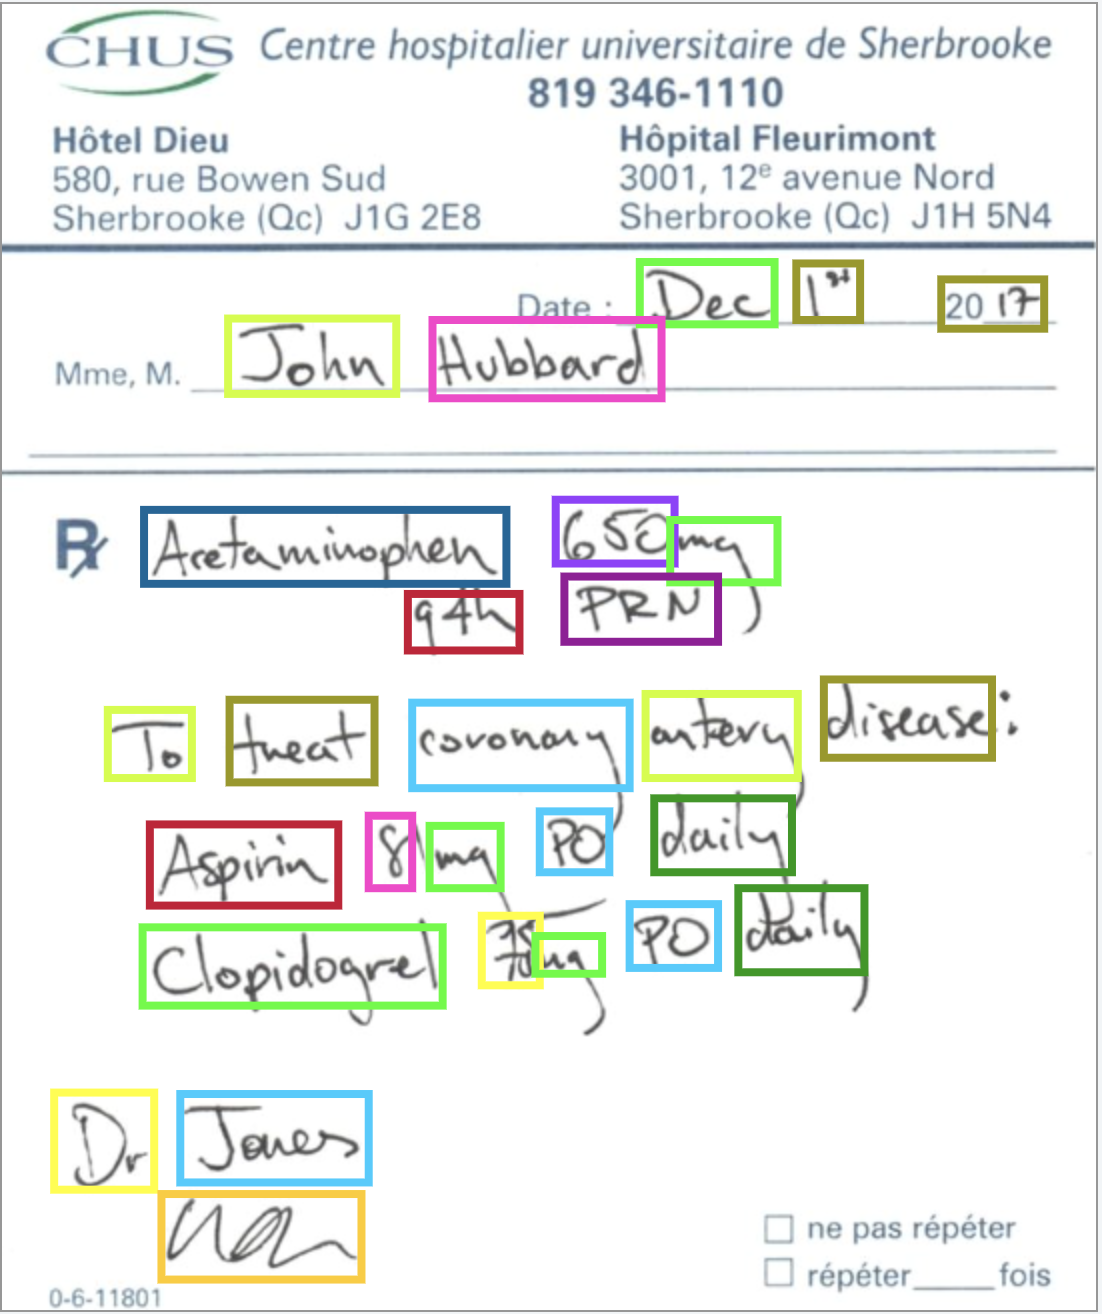 CHUS Centre hospitalier universitaire de Sherbrooke
819 346-1110
Hôtel Dieu
580, rue Bowen Sud
Sherbrooke (Qc) J1G 2E8
Hôpital Fleurimont
3001, 12e avenue Nord
Sherbrooke (Qc) J1H 5N4
Date : Dec 1st 2017
Mme, M. John Hubbard
Rx Acetaminophen 650mg
q4h PRN
To treat coronary artery disease:
Aspirin 81mg PO daily
Clopidogrel 75mg PO daily
Dr Jones
ne pas répéter
répéter______fois
0-6-11801